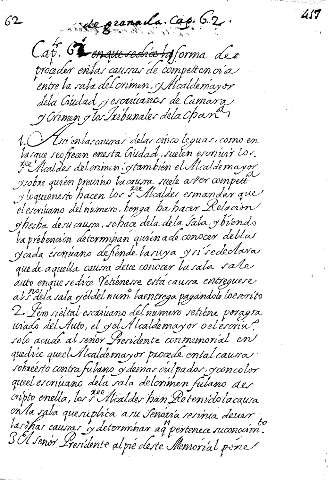 62
de granada. Cap. 62.
417
Cap.º 62 en que se dice la forma de
proceder en las causas de competencia
entre la sala del Crimen, y Alcalde mayor
de la Ciudad y escrivanos de Camara
y Crimen y los Tribunales de la Chan.ª
1. Assi en las causas de las cinco leguas, como en
las que se ofrecen en esta Ciudad, suelen escrivir los
s.res Alcaldes del Crimen, y tambien el Alcalde mayor
y sobre quien previno la causa suele aver competen.ª
y lo que en esto hacen los s.res Alcaldes es mandar que
el escrivano del numero, benga ha hacer Relacion
y hecha de su causa, se hace de la de la Sala, y biendo
la prebencion determinan quien a de conocer de ellas
y cada escrivano defiende la suya y si se declara
que de aquella causa deve conocer la sala sale
auto en que se dice Retienese esta causa entreguese
al s.no de la sala y el del num.º la entrega pagandole lo escrito
2. Item si el tal escrivano del numero se tiene por agra
viado del Auto, el y el Alcalde mayor o el escriv.º
solo acude al señor Presidente con memorial en
que dice que el Alcalde mayor procede en tal causa
sobre esto contra fulano y demas culpados, y con color
que el escrivano de la sala del crimen fulano de
escripto en ella, los s.res Alcaldes han Retenido la causa
en la sala que suplica a su Señoria se sirva de ver
las d̃has causas y determinar a q.n pertenece su conocim.to
3. A señor Presidente al pie de este Memorial pone